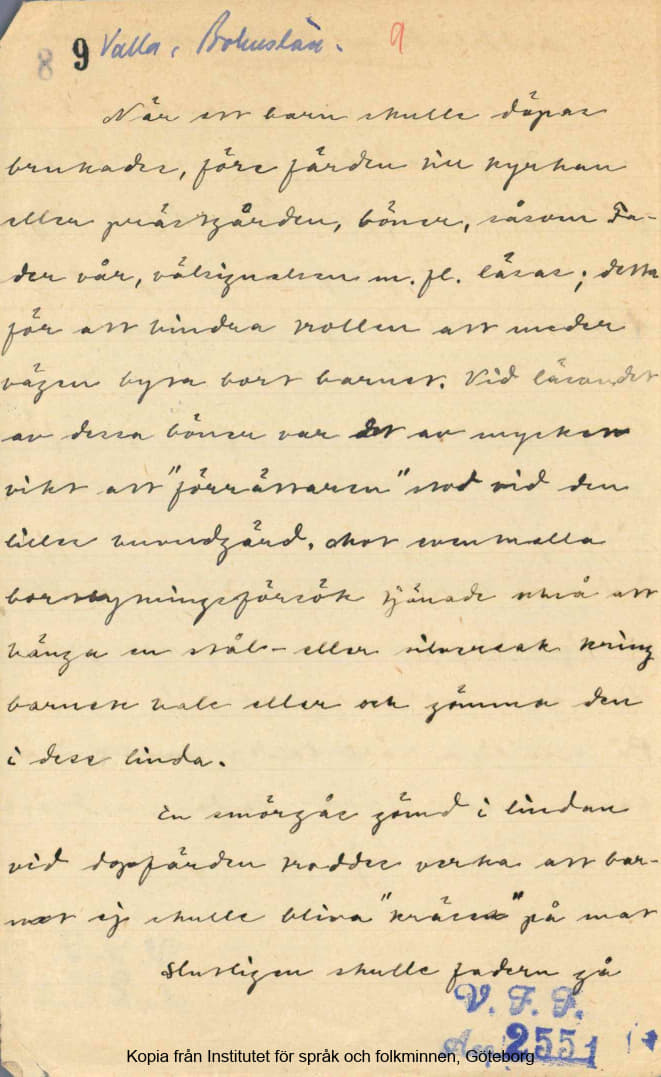 8 9 Valla, Bohuslän. 9
När ett barn skulle döpas
brukades, före färden till kyrkan
eller prästgården, böner, såsom Fa-
der vår, välsignelsen m. fl. läsas; detta
för att hindra trollen att under
vägen byta bort barnet. Vid läsandet
av dessa böner var det av mycken
vikt att "förrättaren" stod vid den
lilles huvudgärd. Mot eventuella
bortbytningsförsök tjänade också att
hänga en stål- eller silversak kring
barnets hals eller och gömma den
i dess linda.
En smörgås gömd i lindan
vid dopfärden troddes verka att bar-
net ej skulle bliva "kräset" på mat
Slutligen skulle fadern gå
V. F. F.
Acc. 2551 1
Kopia från Institutet för språk och folkminnen, Göteborg